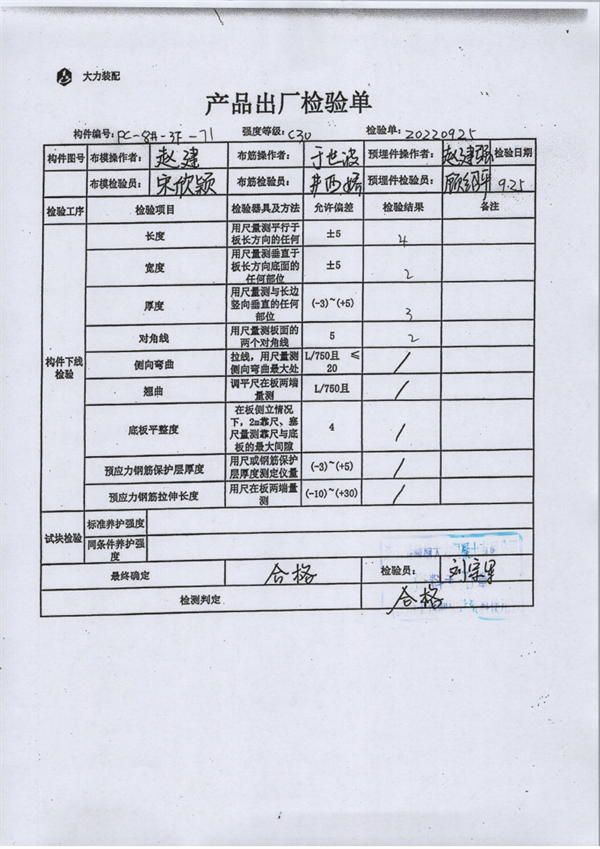 大力装配
产品出厂检验单
构件编号: PC-8#-3F-71 强度等级: C30 检验单: 20220925
构件图号 布模操作者: 赵建 布筋操作者: 于世波 预埋件操作者: 赵建强 检验日期
布模检验员: 宋欣颖 布筋检验员: 预埋件检验员: 9.25
检验工序 检验项目 检验器具及方法 允许偏差 检验结果 备注
构件下线检验
长度 用尺量测平行于板长方向的任何 ±5 4
宽度 用尺量测垂直于板长方向底面的任何部位 ±5 2
厚度 用尺量测与长边竖向垂直的任何部位 (-3)~(+5) 3
对角线 用尺量测板面的两个对角线 5 2
侧向弯曲 拉线,用尺量测侧向弯曲最大处 L/750且 ≤20 /
翘曲 调平尺在板两端量测 L/750且 /
底板平整度 在板侧立情况下,2m靠尺、塞尺量测靠尺与底板的最大间隙 4 /
预应力钢筋保护层厚度 用尺或钢筋保护层厚度测定仪量 (-3)~(+5) /
预应力钢筋拉伸长度 用尺在板两端量测 (-10)~(+30) /
试块检验 标准养护强度
同条件养护强度
最终确定 合格 检验员:
检测判定 合格